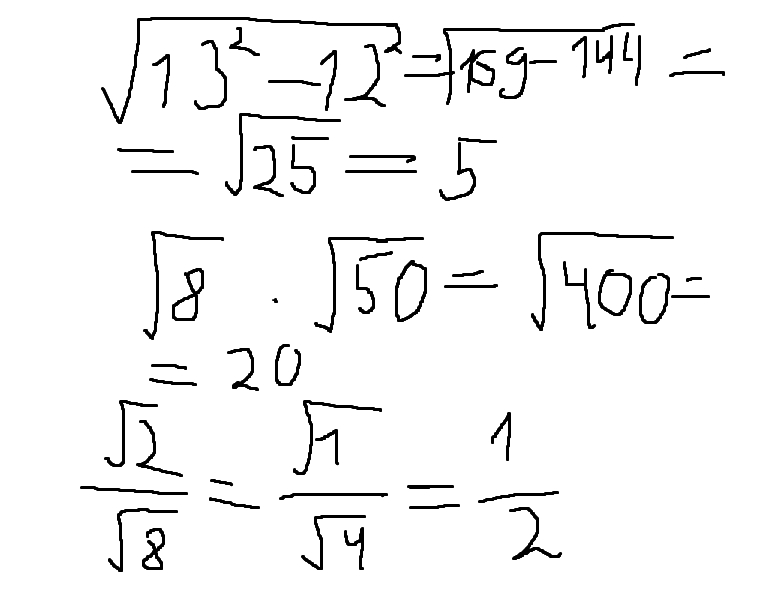 √(13² - 12²) = √(159 - 144) =
= √25 = 5
√8 · √50 = √400 =
= 20
√2/√8 = √1/√4 = 1/2